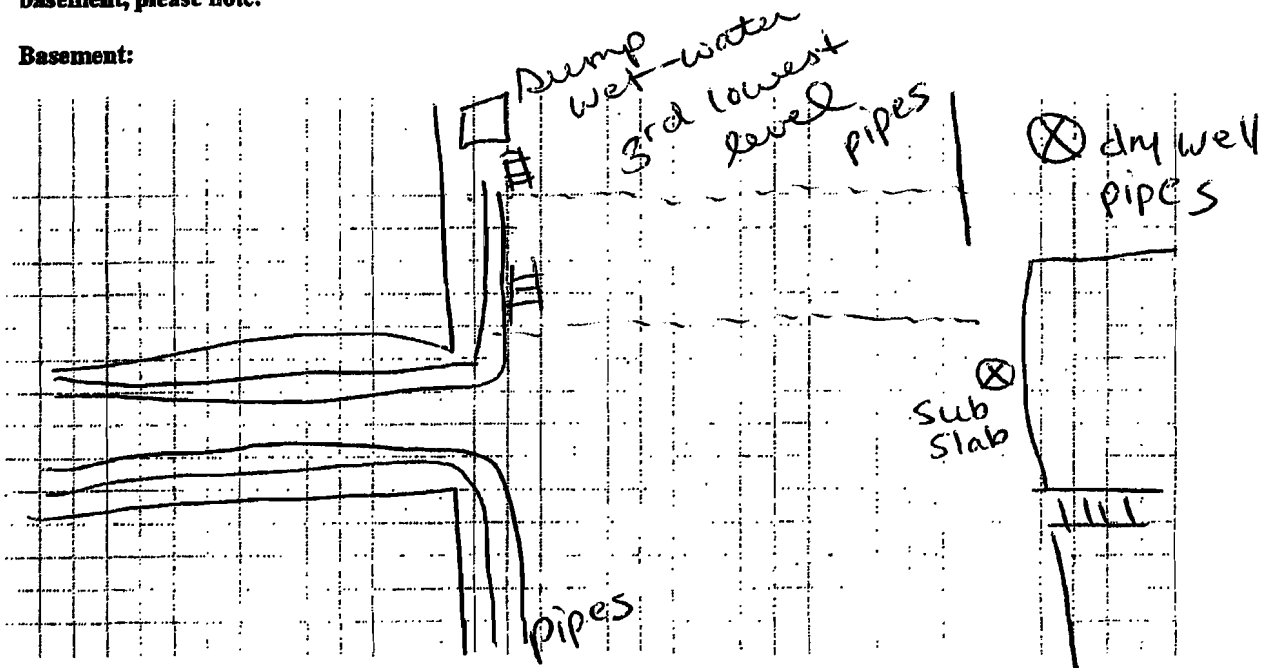 basement, please note:
Basement:
Sump
wet-water
3rd lowest
level
pipes
dry well
pipes
Sub
Slab
pipes